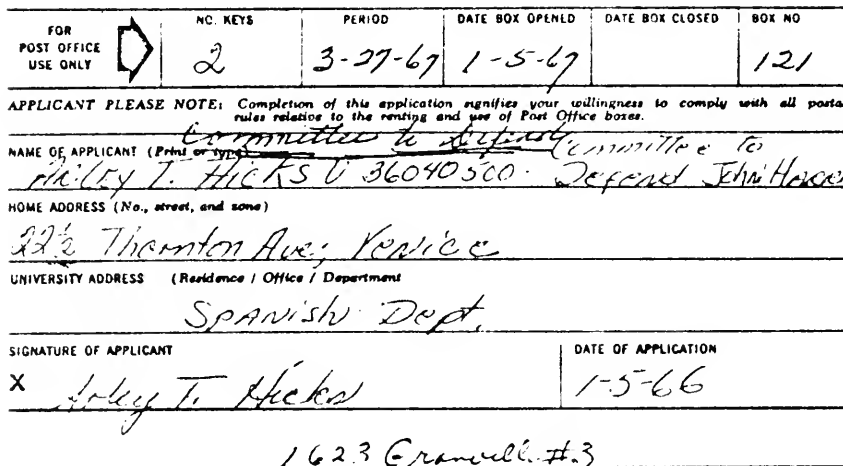 FOR
POST OFFICE
USE ONLY
NO. KEYS
2
PERIOD
3-27-67
DATE BOX OPENED
1-5-67
DATE BOX CLOSED
BOX NO
121
APPLICANT PLEASE NOTE: Completion of this application signifies your willingness to comply with all postal
rules relative to the renting and use of Post Office boxes.
Committee to Defend
NAME OF APPLICANT (Print or type)
Committee to
T. HICKS U 36040500. Defend John
HOME ADDRESS (No., street, and zone)
22½ Thornton Ave, Venice
UNIVERSITY ADDRESS (Residence / Office / Department
SPANISH Dept.
SIGNATURE OF APPLICANT
X T. Hicks
DATE OF APPLICATION
1-5-66
1623 Granville #3